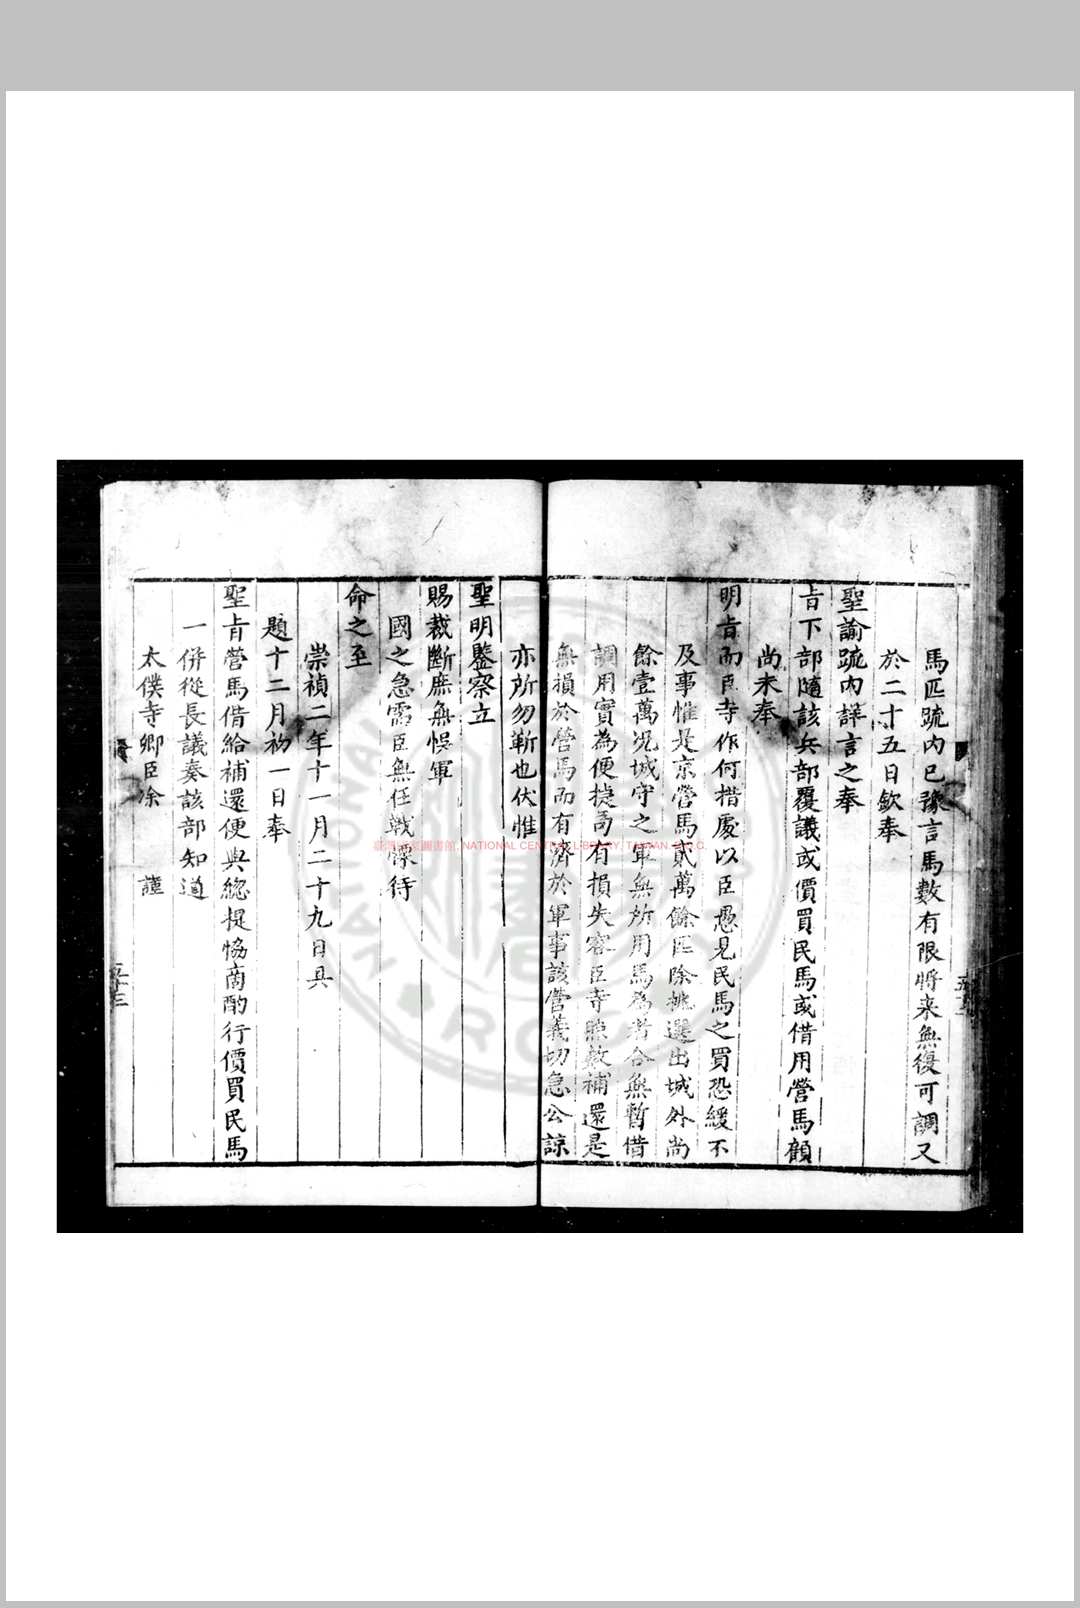 馬匹疏内已豫言馬數有限將来無復可調又
於二十五日欽奉
聖諭疏内詳言之奉
旨下部隨該兵部覆議或價買民馬或借用營馬顧
尚未奉
明旨而臣寺作何措處以臣愚見民馬之買恐緩不
及事惟是京營馬貳萬餘匹除挑選出城外尚
餘壹萬况城守之軍無所用馬為者合無暫借
調用實為便捷苐有損失容臣寺照數補還是
無損於營馬而有濟於軍事該營義切急公諒
亦所勿靳也伏惟
聖明鑒察立
賜裁斷庶無悞軍
國之急需臣無任戰慄待
命之至
崇禎二年十一月二十九日具
題十二月初一日奉
聖旨營馬借給補還便與總提協商酌行價買民馬
一併從長議奏該部知道
太僕寺卿臣涂 謹
臺灣國家圖書館, NATIONAL CENTRAL LIBRARY, TAIWAN, R.O.C.